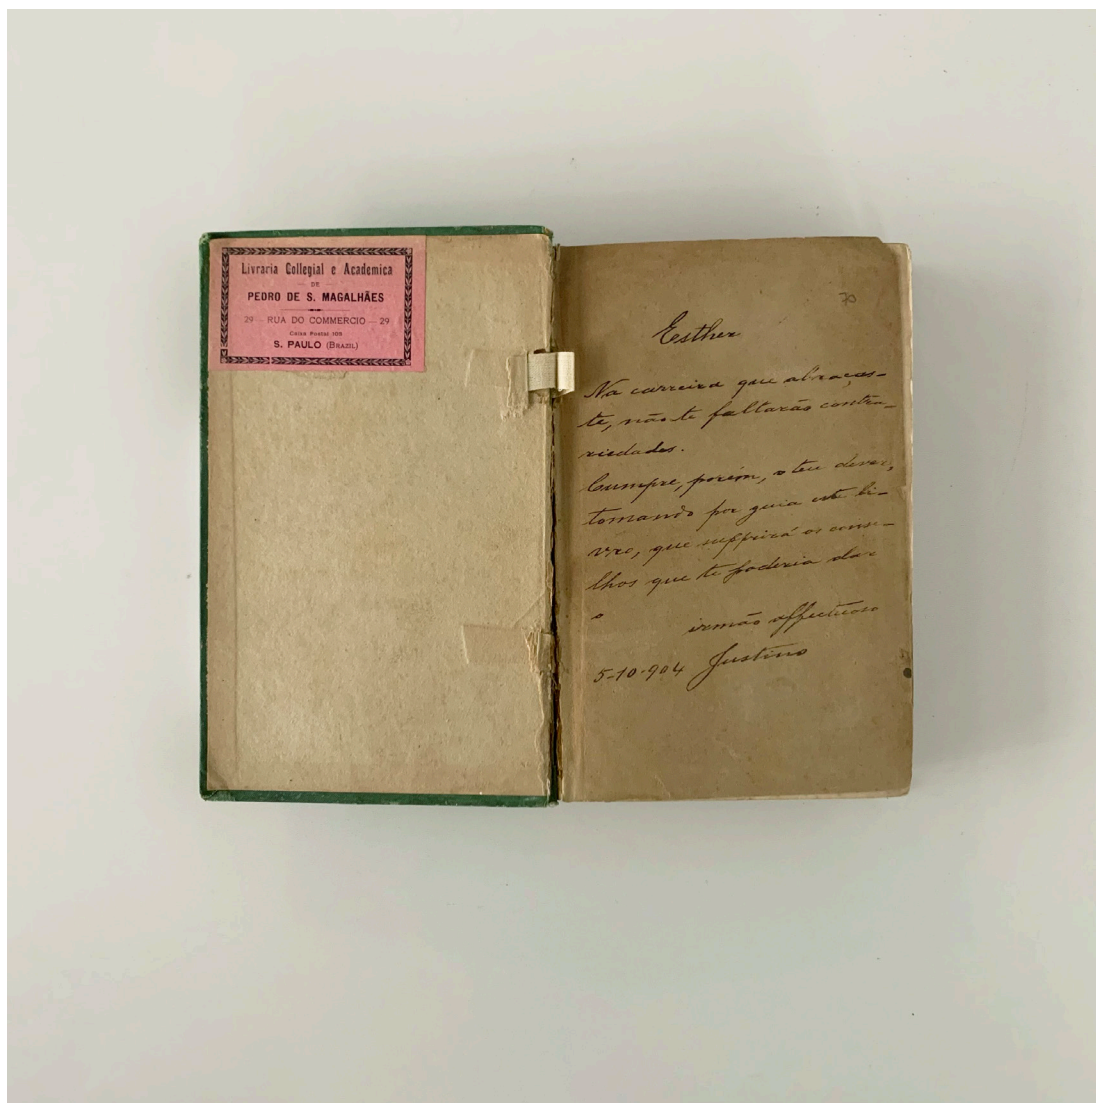 Livraria Collegial e Academica
DE
PEDRO DE S. MAGALHÃES
29 - RUA DO COMMERCIO - 29
Caixa Postal 105
S. PAULO (BRAZIL)
70
Esther
Na carreira que abraças-
te, não te faltarão contra-
riedades.
Cumpre, porém, o teu dever,
tomando por guia este li-
vro, que supprirá os conse-
lhos que te poderia dar
o irmão affectuoso
5-10-904 Justino